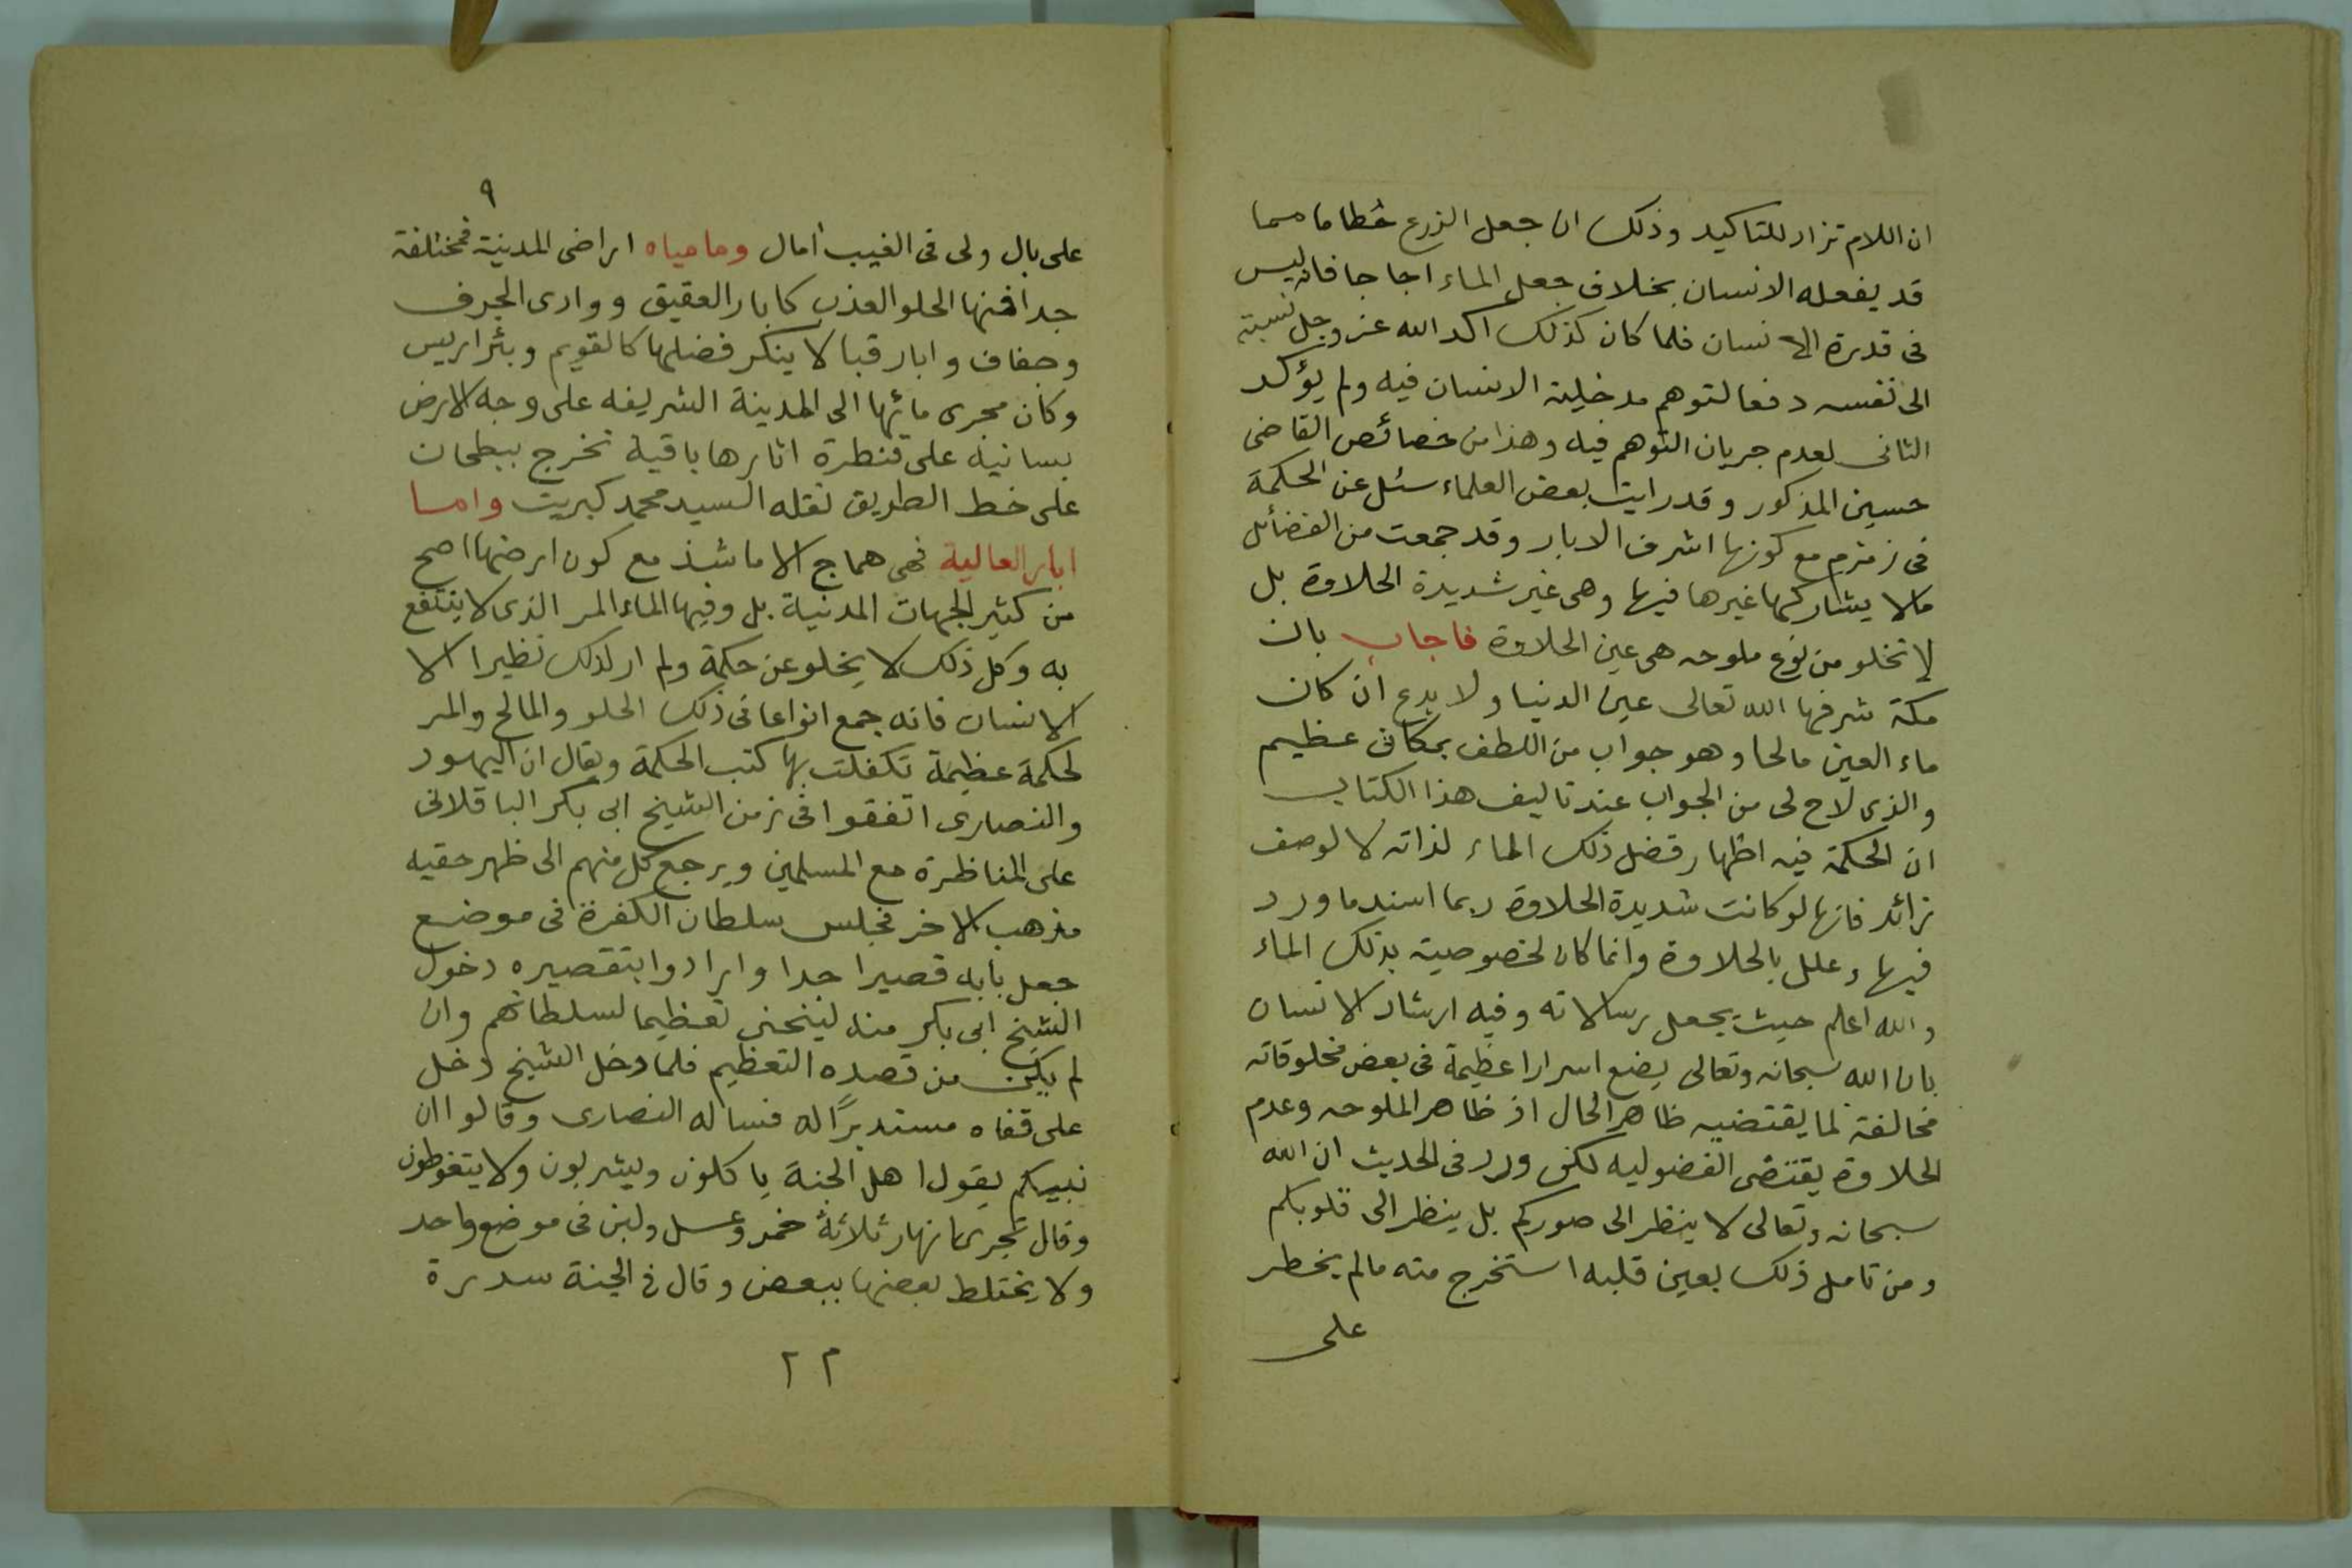 ان اللام تزاد للتاكيد وذلك ان جعل الزرع حطاما مما
قد يفعله الانسان بخلاف جعل الماء اجاجا فانه ليس
فى قدرة الانسان فلما كان كذلك اكد الله عز وجل نسبته
الى نفسه دفعا لتوهم مدخلية الانسان فيه ولم يؤكد
الثانى لعدم جريان التوهم فيه وهذا من خصائص القاضى
حسين المذكور وقد رايت بعض العلماء سئل عن الحكمة
فى زمزم مع كونها اشرف الابار وقد جمعت من الفضائل
مالا يشاركها غيرها فيها وهى غير شديدة الحلاوة بل
لا تخلو من نوع ملوحه هى عين الحلاوة فاجاب بان
مكة شرفها الله تعالى عين الدنيا ولا بدع ان كان
ماء العين مالحا وهو جواب من اللطف بمكان عظيم
والذى لاح لى من الجواب عند تاليف هذا الكتاب
ان الحكمة فيه اظهار فضل ذلك الماء لذاته لا لوصف
زائد فانها لو كانت شديدة الحلاوة ربما اسند ما ورد
فيها وعلل بالحلاوة وانما كان لخصوصية بذلك الماء
والله اعلم حيث يجعل رسالاته وفيه ارشاد الانسان
بان الله سبحانه وتعالى يضع اسرارا عظيمة فى بعض مخلوقاته
مخالفة لما يقتضيه ظاهر الحال اذ ظاهر الملوحه وعدم
الحلاوة يقتضى الفضوليه لكن ورد فى الحديث ان الله
سبحانه وتعالى لا ينظر الى صوركم بل ينظر الى قلوبكم
ومن تامل ذلك بعين قلبه استخرج منه مالم يخطر
على
٩
على بال ولى فى الغيب آمال وما مياه اراضى المدينة فمختلفة
جدا فمنها الحلو العذب كابار العقيق ووادى الجرف
وجفاف وابار قبا لا ينكر فضلها كالقويم وبئر اريس
وكان مجرى مائها الى المدينة الشريفه على وجه الارض
بسانية على قنطرة اثارها باقية تخرج ببطحان
على خط الطريق نقله السيد محمد كبريت واما
ابار العالية فهى هماج الا ما شذ مع كون ارضها اصح
من كثير الجهات المدنية بل وفيها الماء المر الذى لا ينتفع
به وكل ذلك لا يخلو عن حكمة ولم ار لذلك نظيرا الا
الانسان فانه جمع انواعا فى ذلك الحلو والمالح والمر
لحكمة عظيمة تكفلت بها كتب الحكمة ويقال ان اليهود
والنصارى اتفقوا فى زمن الشيخ ابى بكر الباقلانى
على المناظرة مع المسلمين ويرجع كل منهم الى ظهر حقيه
مذهب الاخر فجلس سلطان الكفرة فى موضع
جعل بابه قصيرا جدا وارادوا بتقصيره دخول
الشيخ ابى بكر منه لينحنى تعظيما لسلطانهم وان
لم يكن من قصده التعظيم فلما دخل الشيخ دخل
على قفاه مستدبرًا له فساله النصارى وقالوا ان
نبيكم يقول اهل الجنة ياكلون ويشربون ولا يتغوطون
وقال تجرى انهار ثلاثة خمر وعسل ولبن فى موضع واحد
ولا يختلط بعضها ببعض وقال فى الجنة سدرة
٢٢